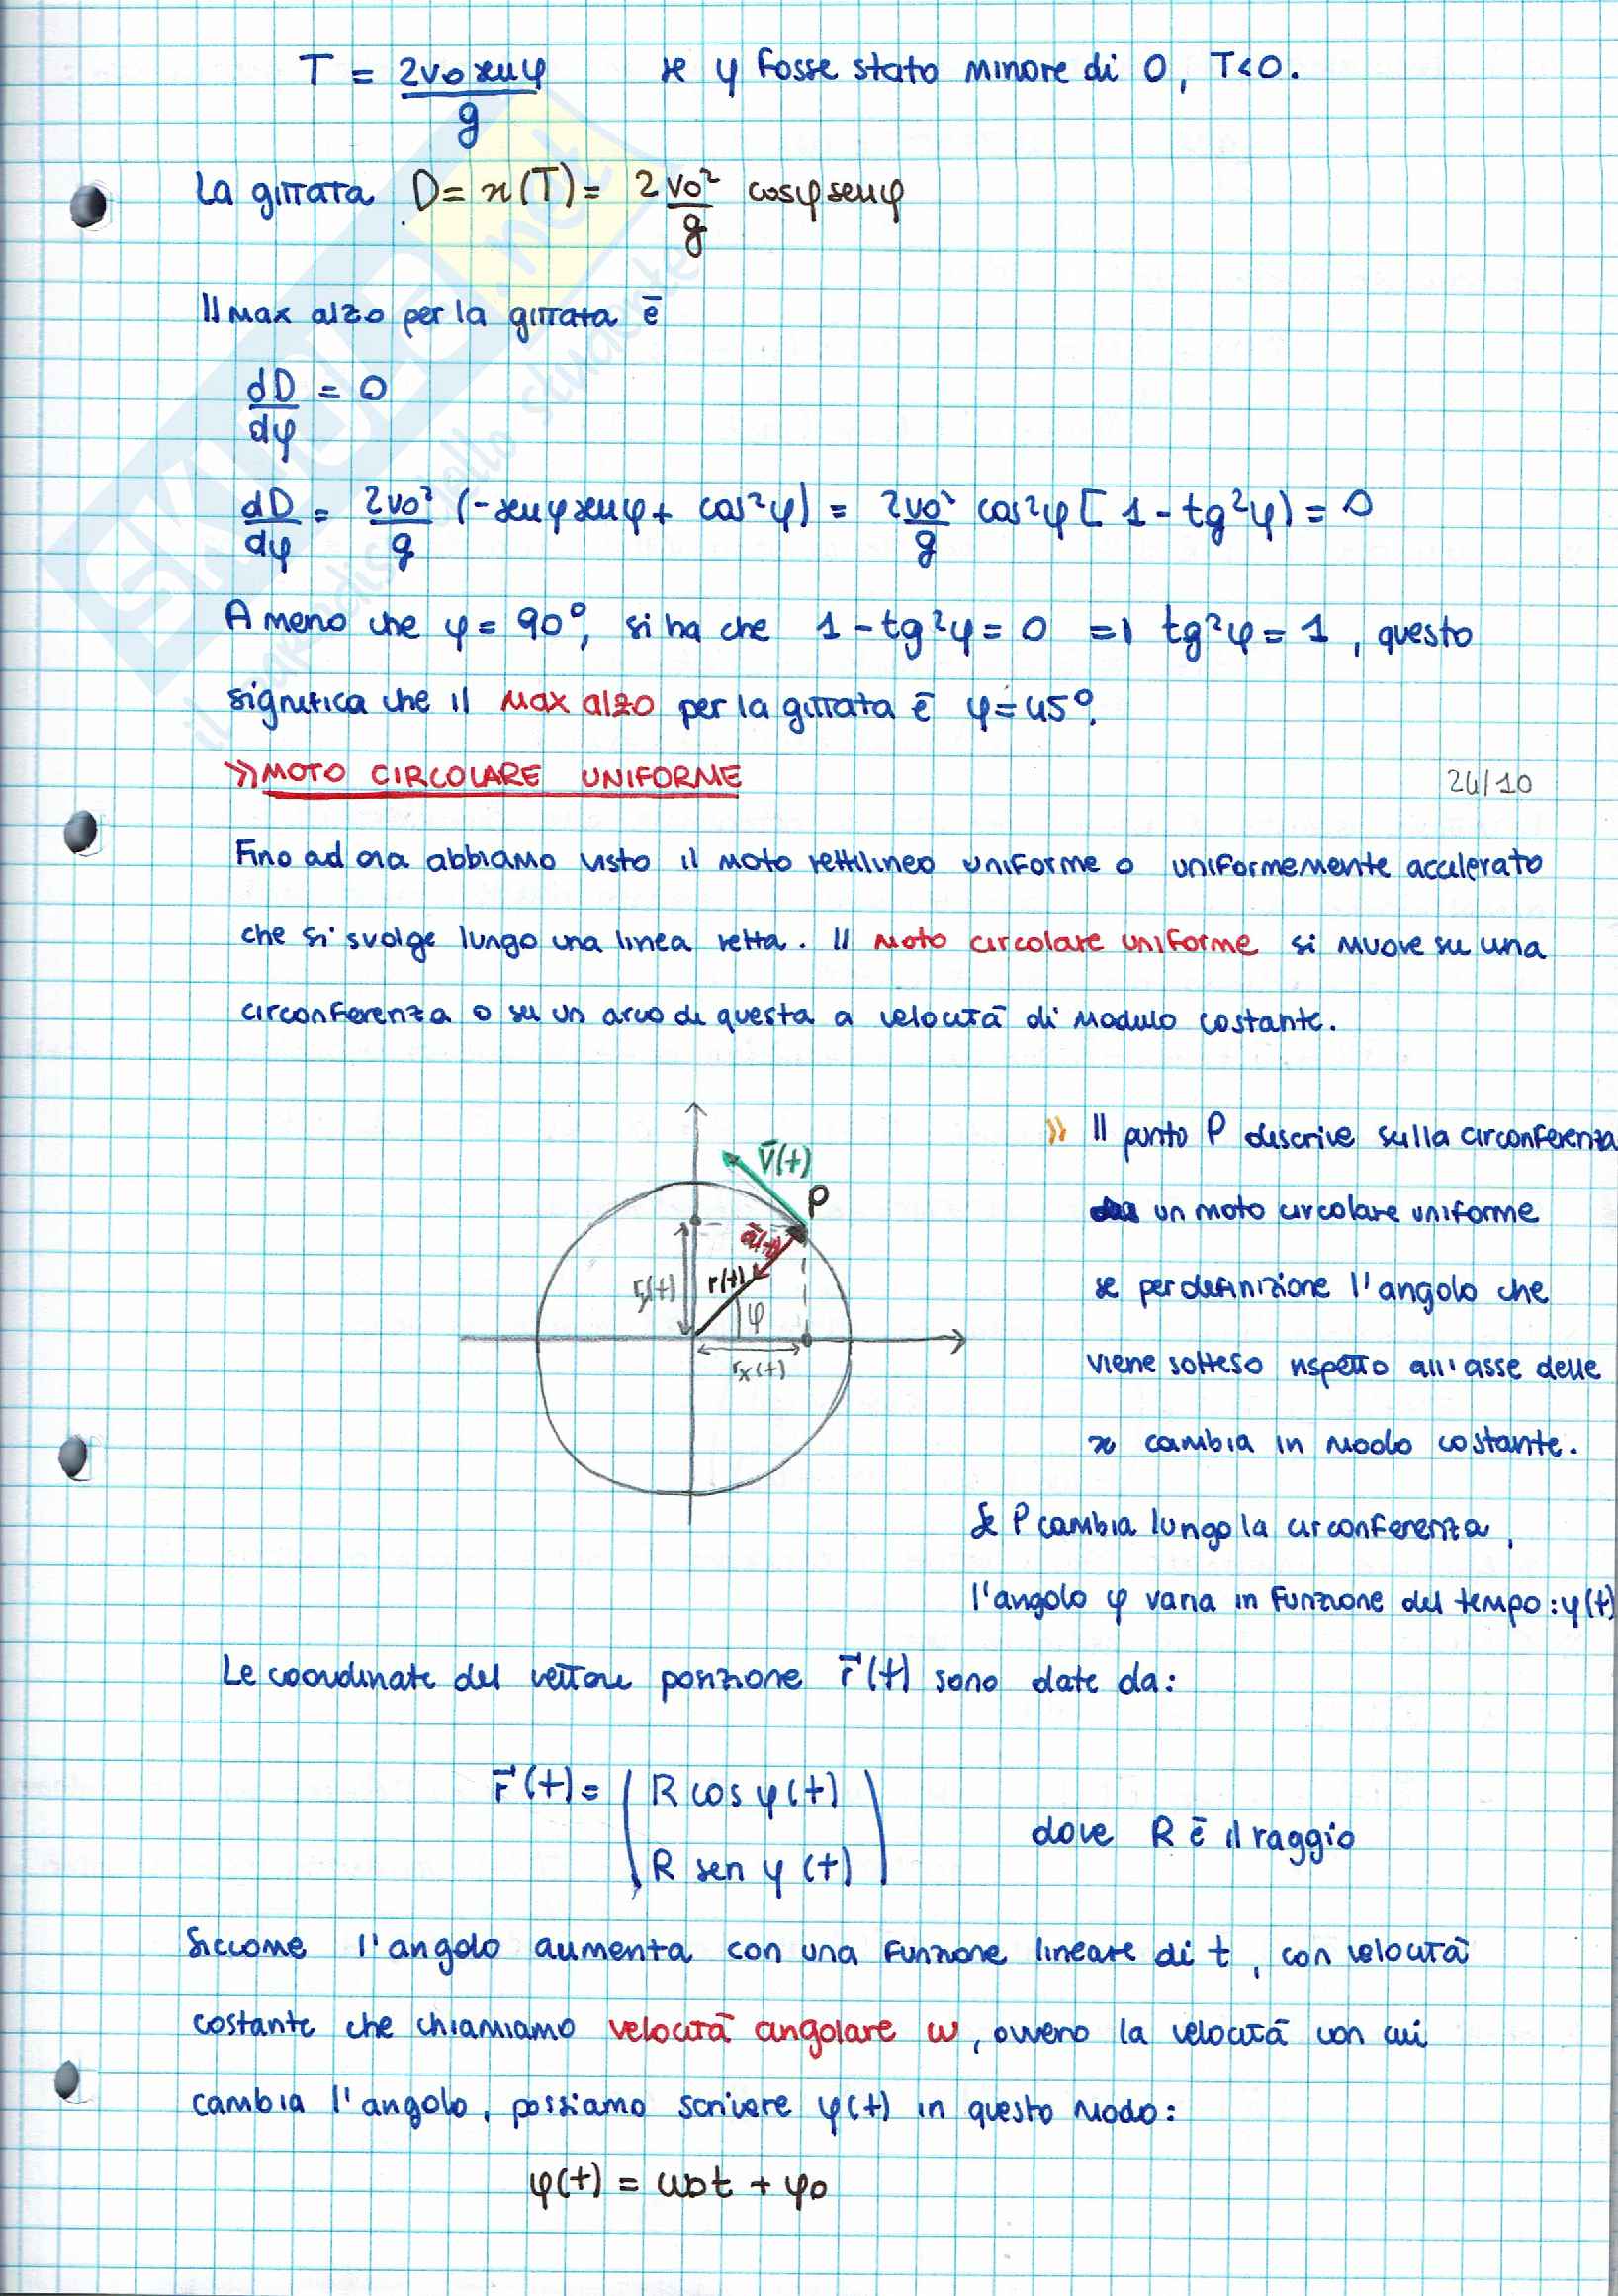 T = 2v₀senφ/g se φ fosse stato minore di 0, T<0.
La gittata D = x(T) = 2v₀²/g cosφsenφ
Il max alzo per la gittata è
dD/dφ = 0
dD/dφ = 2v₀²/g (-senφsenφ + cos²φ) = 2v₀²/g cos²φ [1 - tg²φ) = 0
A meno che φ = 90°, si ha che 1 - tg²φ = 0 => tg²φ = 1, questo
significa che il max alzo per la gittata è φ = 45°.
>> MOTO CIRCOLARE UNIFORME 24/10
Fino ad ora abbiamo visto il moto rettilineo uniforme o uniformemente accelerato
che si svolge lungo una linea retta. Il moto circolare uniforme si muove su una
circonferenza o su un arco di questa a velocità di modulo costante.
v̄(t)
P
ā(t)
r(t)
ry(t)
φ
rx(t)
>> Il punto P descrive sulla circonferenza
un moto circolare uniforme
se per definizione l'angolo che
viene sotteso rispetto all'asse delle
x cambia in modo costante.
Se P cambia lungo la circonferenza,
l'angolo φ varia in funzione del tempo: φ(t)
Le coordinate del vettore posizione r⃗(t) sono date da:
r⃗(t) = (R cos φ(t)
R sen φ(t)) dove R è il raggio
Siccome l'angolo aumenta con una funzione lineare di t, con velocità
costante che chiamiamo velocità angolare ω, ovvero la velocità con cui
cambia l'angolo, possiamo scrivere φ(t) in questo modo:
φ(t) = ω₀t + φ₀
SKUOLA.net
il paradiso dello studente